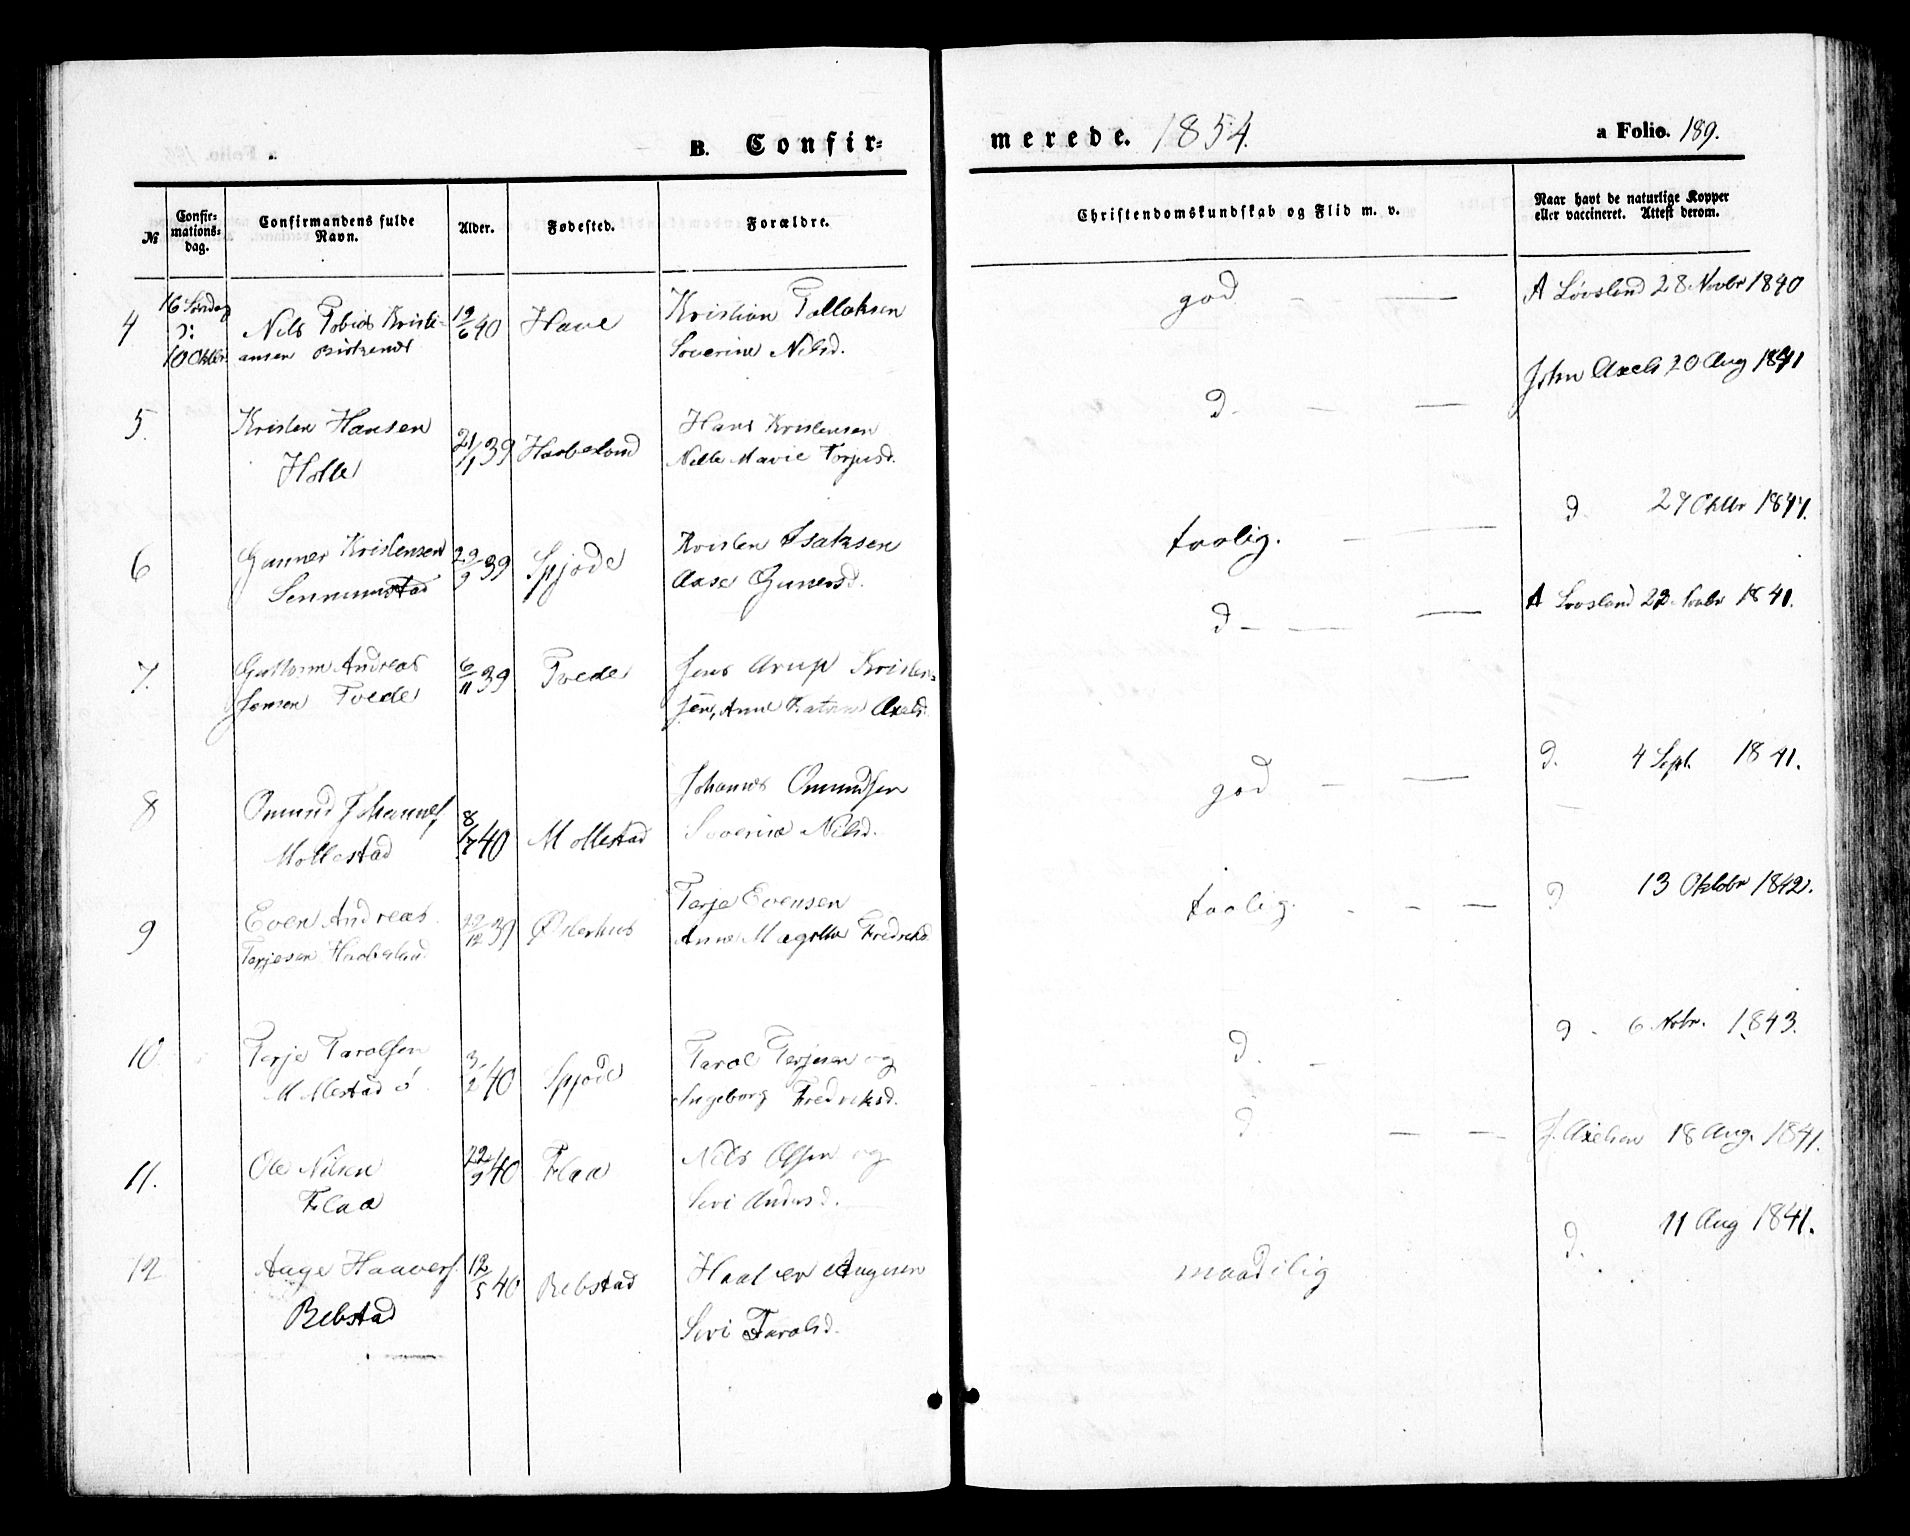 B. Confir-
merede. 1854.
a Folio. 189.
№
Confir-
mations-
dag.
Confirmandens fulde
Navn.
Alder.
Fødested.
Forældre.
Christendomskundskab og Flid m. v.
Naar havt de naturlige Kopper
eller vaccineret. Attest derom.
4
16 Søndag
ɔ:
10 Oktbr
Nils Tobias Kristi-
ansen Birkenes
19/6 40
Have
Kristian Tellaksen
Soverine Nilsd.
god — —
A Lovsland 28 Novbr 1840
5.
Kristen Hansen
Holte
21/1 39
Haabesland
Hans Kristensen
Nille Marie Torjusd.
d. — —
John Axels 20 Aug 1841
6
Gunner Kristensen
Sennumstad
29/9 39
Spjode
Kristen Isaksen
Aase Gunersd.
taalig. — —
d 27 Oktbr 1841.
7.
Guttorm Andreas
Jensen Tvede
6/11 39
Tvede
Jens Arup Kristen-
sen, Anne Katrine Axelsd.
d — —
A Lovsland 22 Novbr 1841.
8
Omund Johannes,
Mollestad
8/7 40
Mollestad
Johannes Omundsen
Soverine Nilsd.
god — —
d. 4 Sept. 1841.
9
Even Andreas
Terjesen Haabesland
22/12 39
Østerhus
Terje Evensen
Anne Magrethe Fredriksd.
taalig. — —
d 13 Oktobr 1842.
10
Terje Tarolsen
Mollestad ø
3/2 40
Spjode
Tarol Terjesen og
Ingeborg Fredriksd.
d. —
d. 6 Nobr. 1843.
11.
Ole Nilsen
Flaa
22/9 40
Flaa
Nils Olsen og
Sivi Andersd.
d. — —
J. Axelsen 18 Aug. 1841.
12
Auge Haavers.
Rebstad
12/5 40
Rebstad
Haaver Augesen
Sivi Tarolsd.
maadelig
d. 11 Aug 1841.